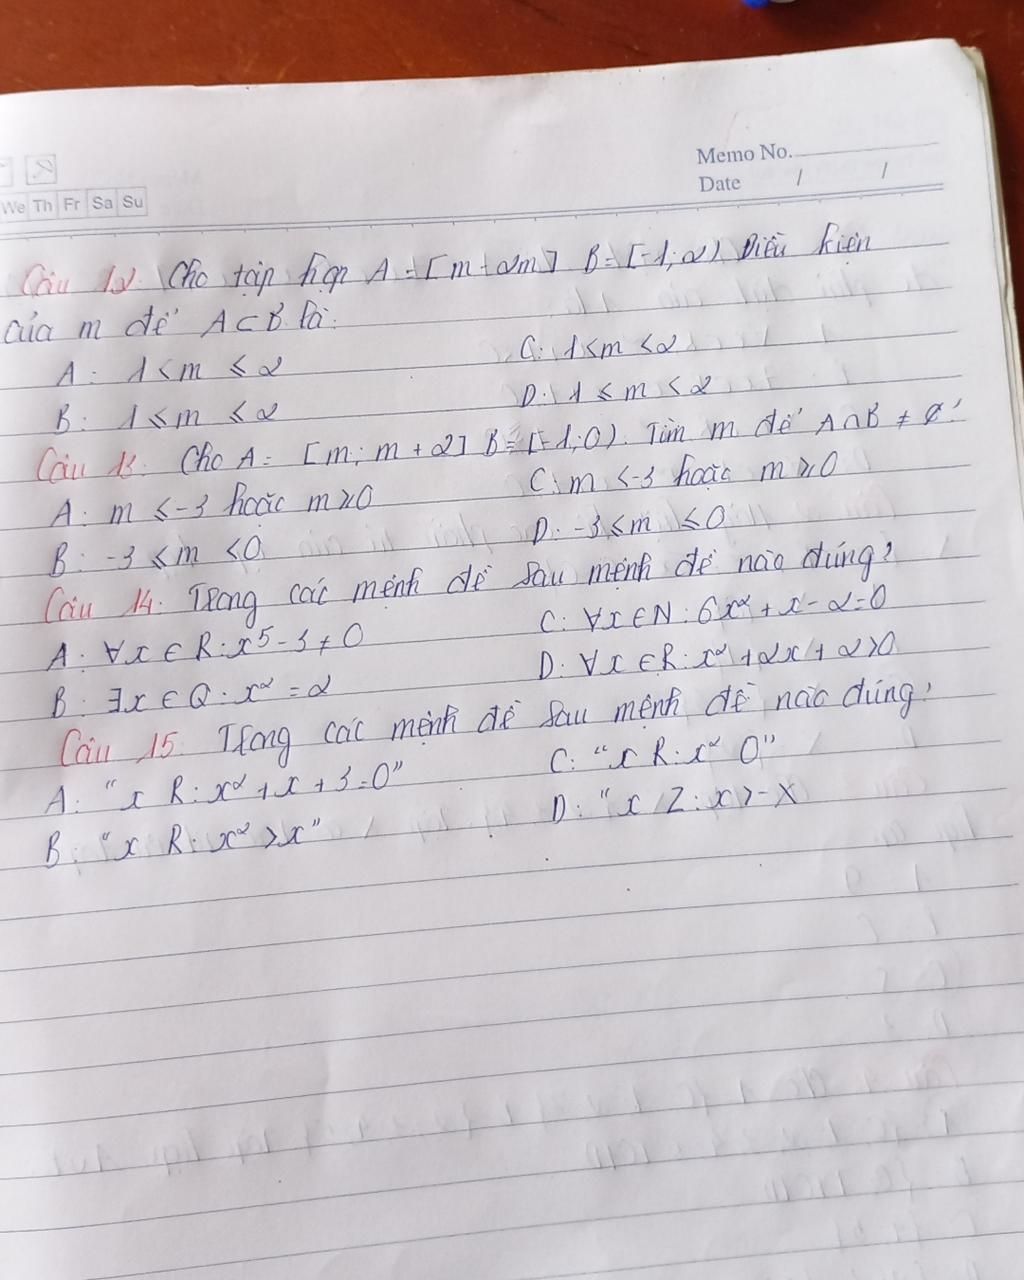 Memo No.
Date / /
We Th Fr Sa Su
Câu 12. Cho tập hợp A = [m - 2m] B = [-1; 2) Điều kiện
của m để A ⊂ B là:
A: 1 < m ≤ 2 C: 1 < m < 2
B: 1 ≤ m ≤ 2 D: 1 ≤ m < 2
Câu 13. Cho A = [m; m + 2] B = [-1; 0). Tìm m để A ∩ B ≠ ∅.
A: m ≤ -3 hoặc m ≥ 0 C: m < -3 hoặc m ≥ 0
B: -3 ≤ m < 0 D: -3 ≤ m ≤ 0
Câu 14. Trong các mệnh đề sau mệnh đề nào đúng?
A: ∀x ∈ R: x⁵ - 3 ≠ 0 C: ∀x ∈ N: 6x² + x - 2 = 0
B: ∃x ∈ Q: x² = 2 D: ∀x ∈ R: x² + 2x + 2 > 0
Câu 15. Trong các mệnh đề sau mệnh đề nào đúng?
A: "x R: x² + x + 3 = 0" C: "x R: x² 0"
B: "x R: x² > x" D: "x Z: x > -x